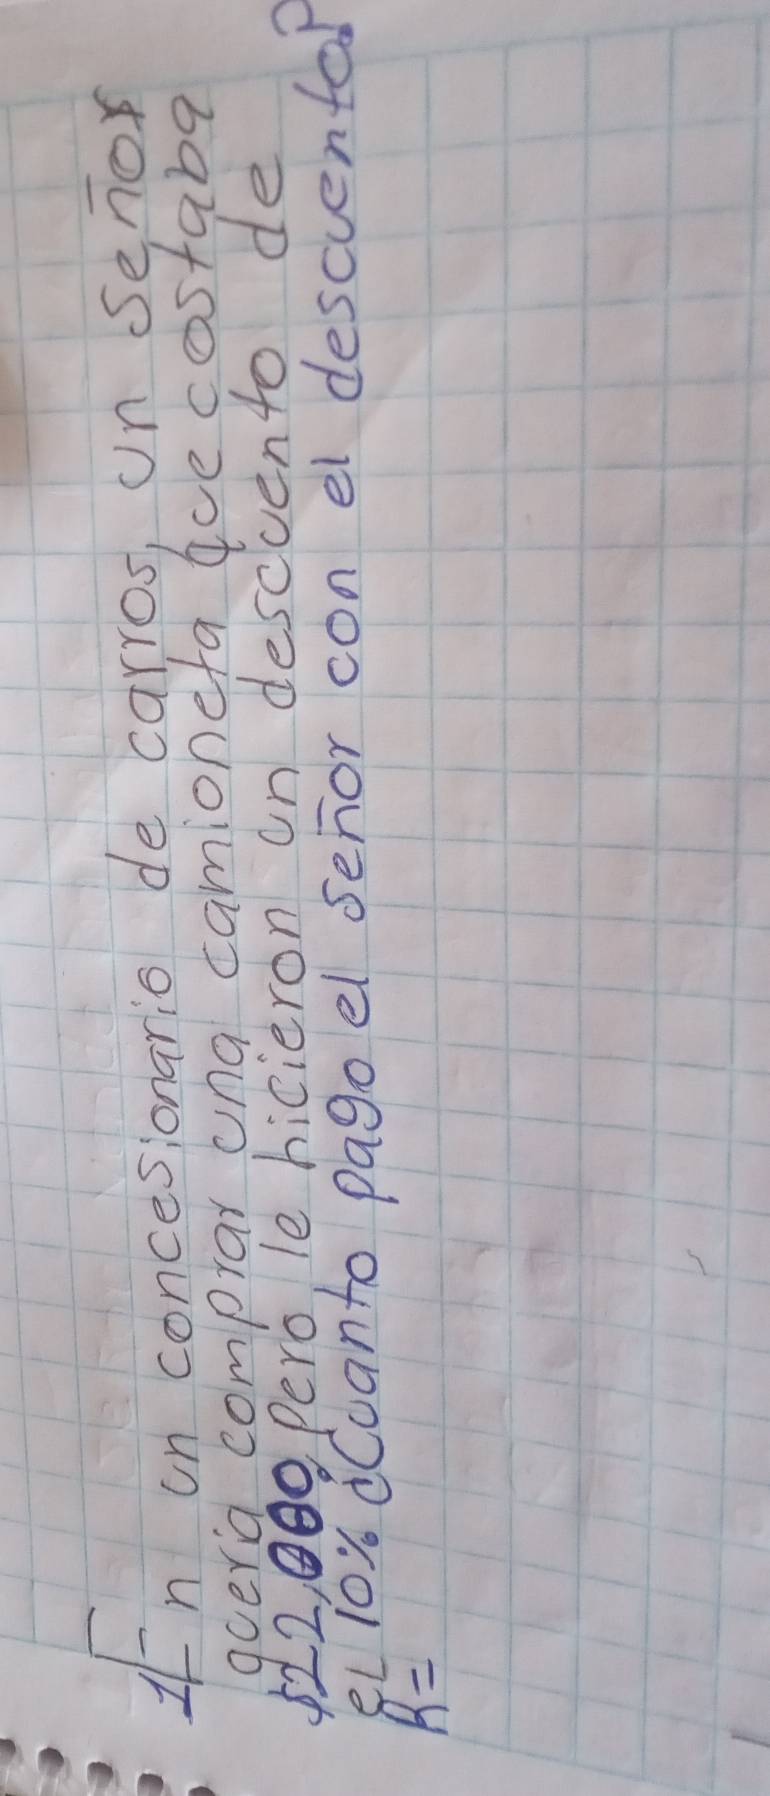 1 En un concesionario de carros, un señor
queria comprar una camioneta que costaba
$22,000, pero le hicieron un descuento de
el 10% ¿Cuanto pago el señor con el descuento?
R=